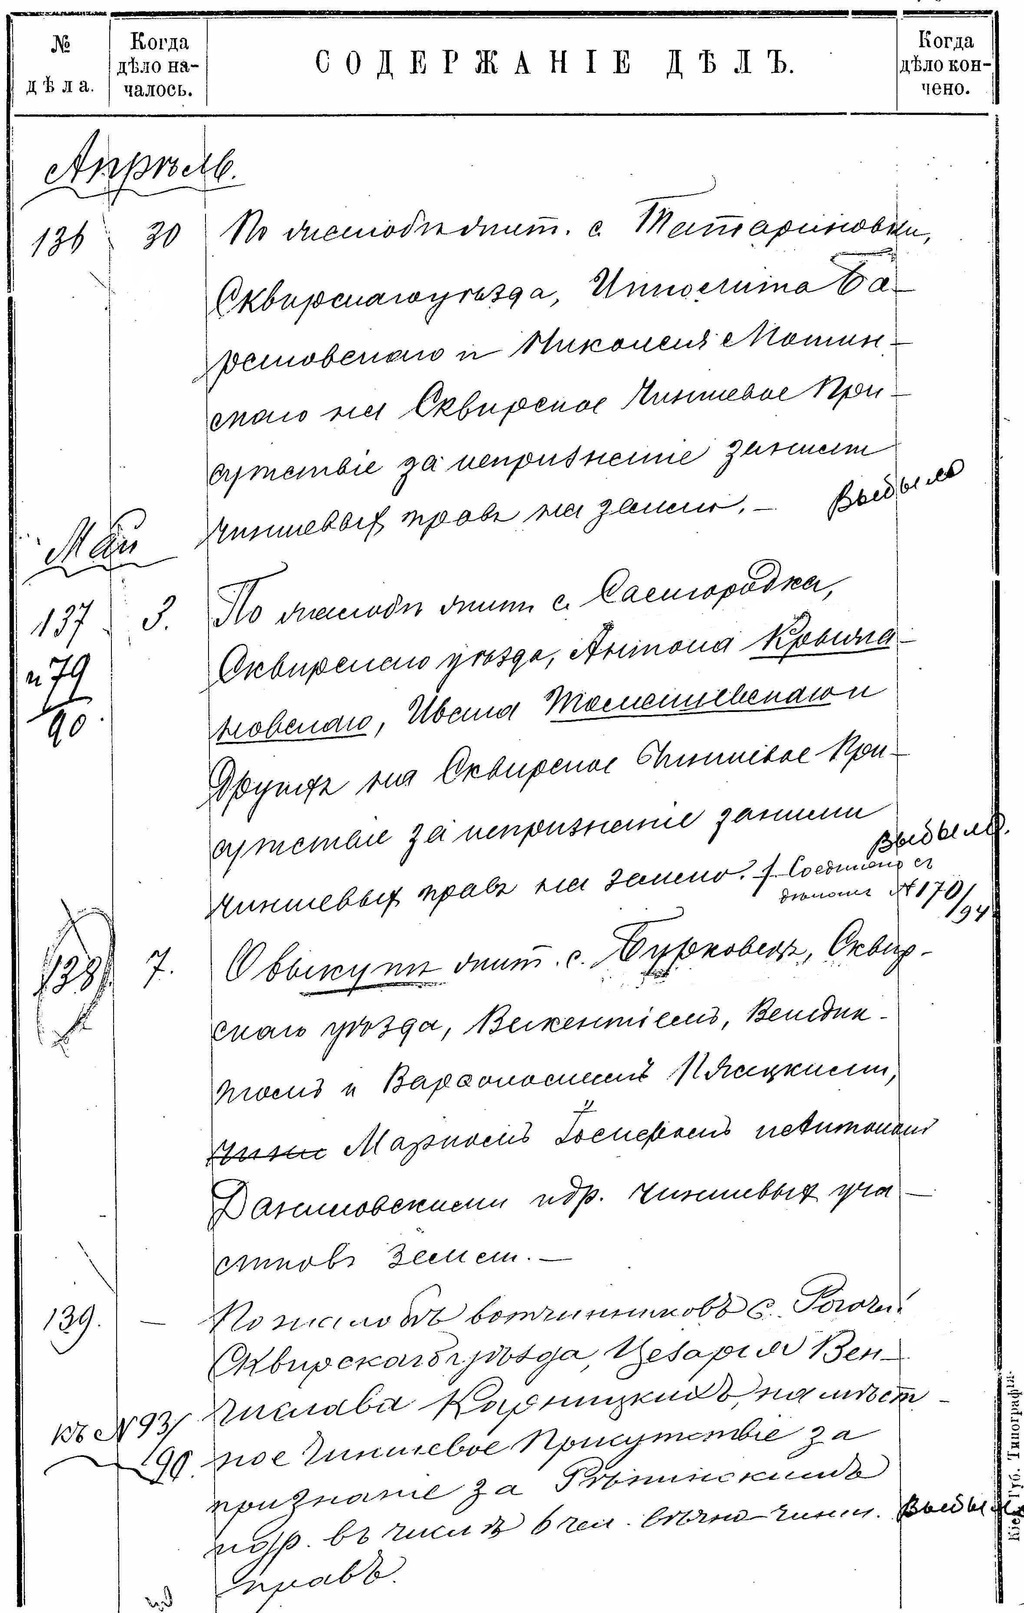 № дѣла.
Когда дѣло началось.
СОДЕРЖАНІЕ ДѢЛЪ.
Когда дѣло кончено.
Апрѣль.
136 30 По жалобѣ жит. с. Татариновки,
Сквирскаго уѣзда, Ипполита Ба-
рановскаго и Николая
скаго на Сквирское Чиншевое При-
сутствіе за непризнаніе за ними
чиншевыхъ правъ на землю. — Выбыло
Май
137 3. По жалобѣ жит. с. Самгородка,
и 79/90. Сквирскаго уѣзда, Антона
новскаго, Ивана Томашевскаго и
другихъ на Сквирское Чиншевое При-
сутствіе за непризнаніе за ними
чиншевыхъ правъ на землю. Выбыло.
Соединено съ
дѣломъ № 170/94
138 7. О выкупѣ жит. с. Бурковецъ, Сквир-
скаго уѣзда, Викентіемъ, Бенедик-
томъ и Варфоломеемъ Пясецкими,
чинш Іосифомъ и Антономъ
Даниловскими и др. чиншевыхъ уча-
стковъ земли. —
139. — По жалобѣ вотчинниковъ с. Рогачи
Сквирскаго уѣзда, Цезаря и Вен-
числава Карницкихъ, на мѣст-
къ № 93/90. ное Чиншевое Присутствіе за
признаніе за
и др. въ числѣ 6 чел. вѣчно-чинш. Выбыло
правъ.
Кіев. Губ. Типографія.